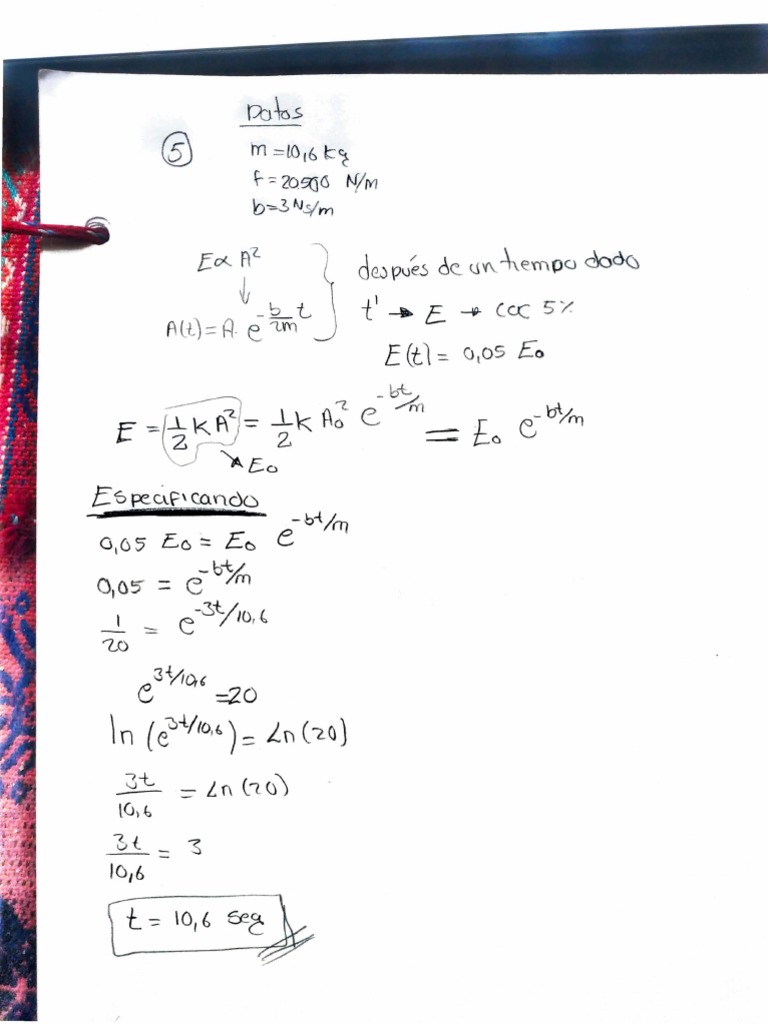 Datos
5
m = 10,6 kg
f = 20500 N/m
b = 3 Ns/m
E ∝ A²
↓
A(t) = A. e^{-b/2m t}
después de un tiempo dado
t' → E → cac 5%
E(t) = 0,05 E₀
E = 1/2 K A² = 1/2 K A₀² e^{-bt/m} = E₀ e^{-bt/m}
↘ E₀
Especificando
0,05 E₀ = E₀ e^{-bt/m}
0,05 = e^{-bt/m}
1/20 = e^{-3t/10,6}
e^{3t/10,6} = 20
ln (e^{3t/10,6}) = Ln (20)
3t/10,6 = Ln (20)
3t/10,6 = 3
t = 10,6 seg